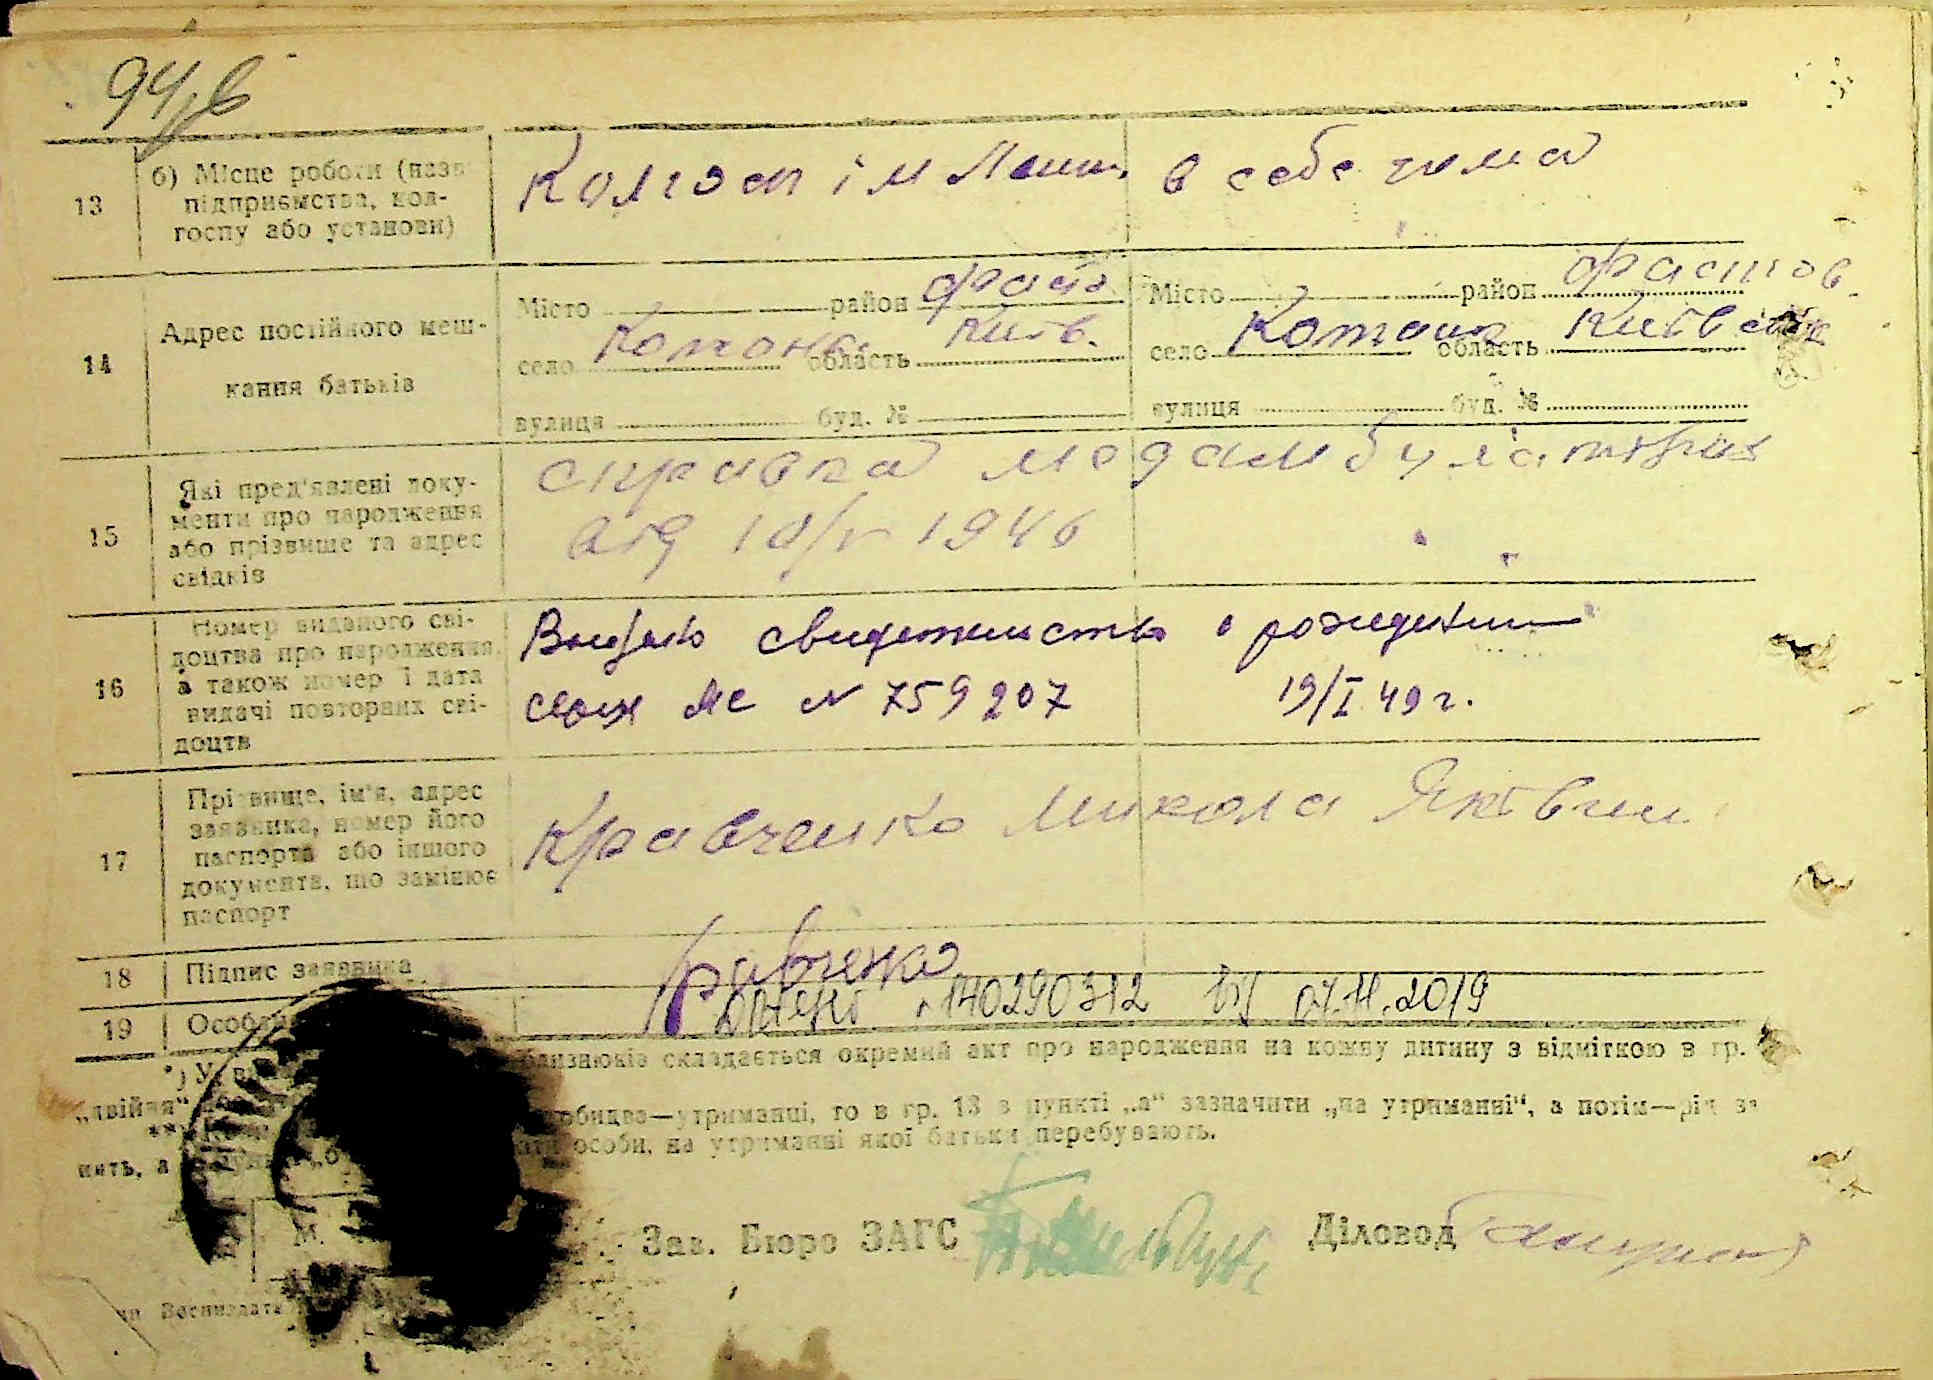 94
13
б) Місце роботи (назв
підприємства, кол-
госпу або установи)
Колгосп ім Лени.
в себе дома
14
Адрес постійного меш-
кання батьків
Місто район Фаст.
село Копани область Київ.
вулиця буд. №
Місто район Фастов.
село область Київськ
вулиця буд. №
15
Які пред'явлені доку-
менти про народження
або прізвище та адрес
свідків
справка медамбулатории
від 10/V 1946
16
Номер виданого сві-
доцтва про народження,
а також номер і дата
видачі повторних сві-
доцтв
Выдано свидетельство о рождении
серия № 759207 19/I 49 г.
17
Прізвище, ім'я, адрес
заявника, номер його
паспорта або іншого
документа, що замінює
паспорт
Кравченко Микола Яківич
18
Підпис заявника
Кравченко
19
Особли
140290312 від 07.11.2019
*) У
близнюків складається окремий акт про народження на кожну дитину з відміткою в гр.
„двійня“
обидва—утриманці, то в гр. 13 в пункті „а“ зазначити „на утриманні“, а потім—рід за
нять, а особи, на утриманні якої батьки перебувають.
М.
Зав. Бюро ЗАГС
Діловод